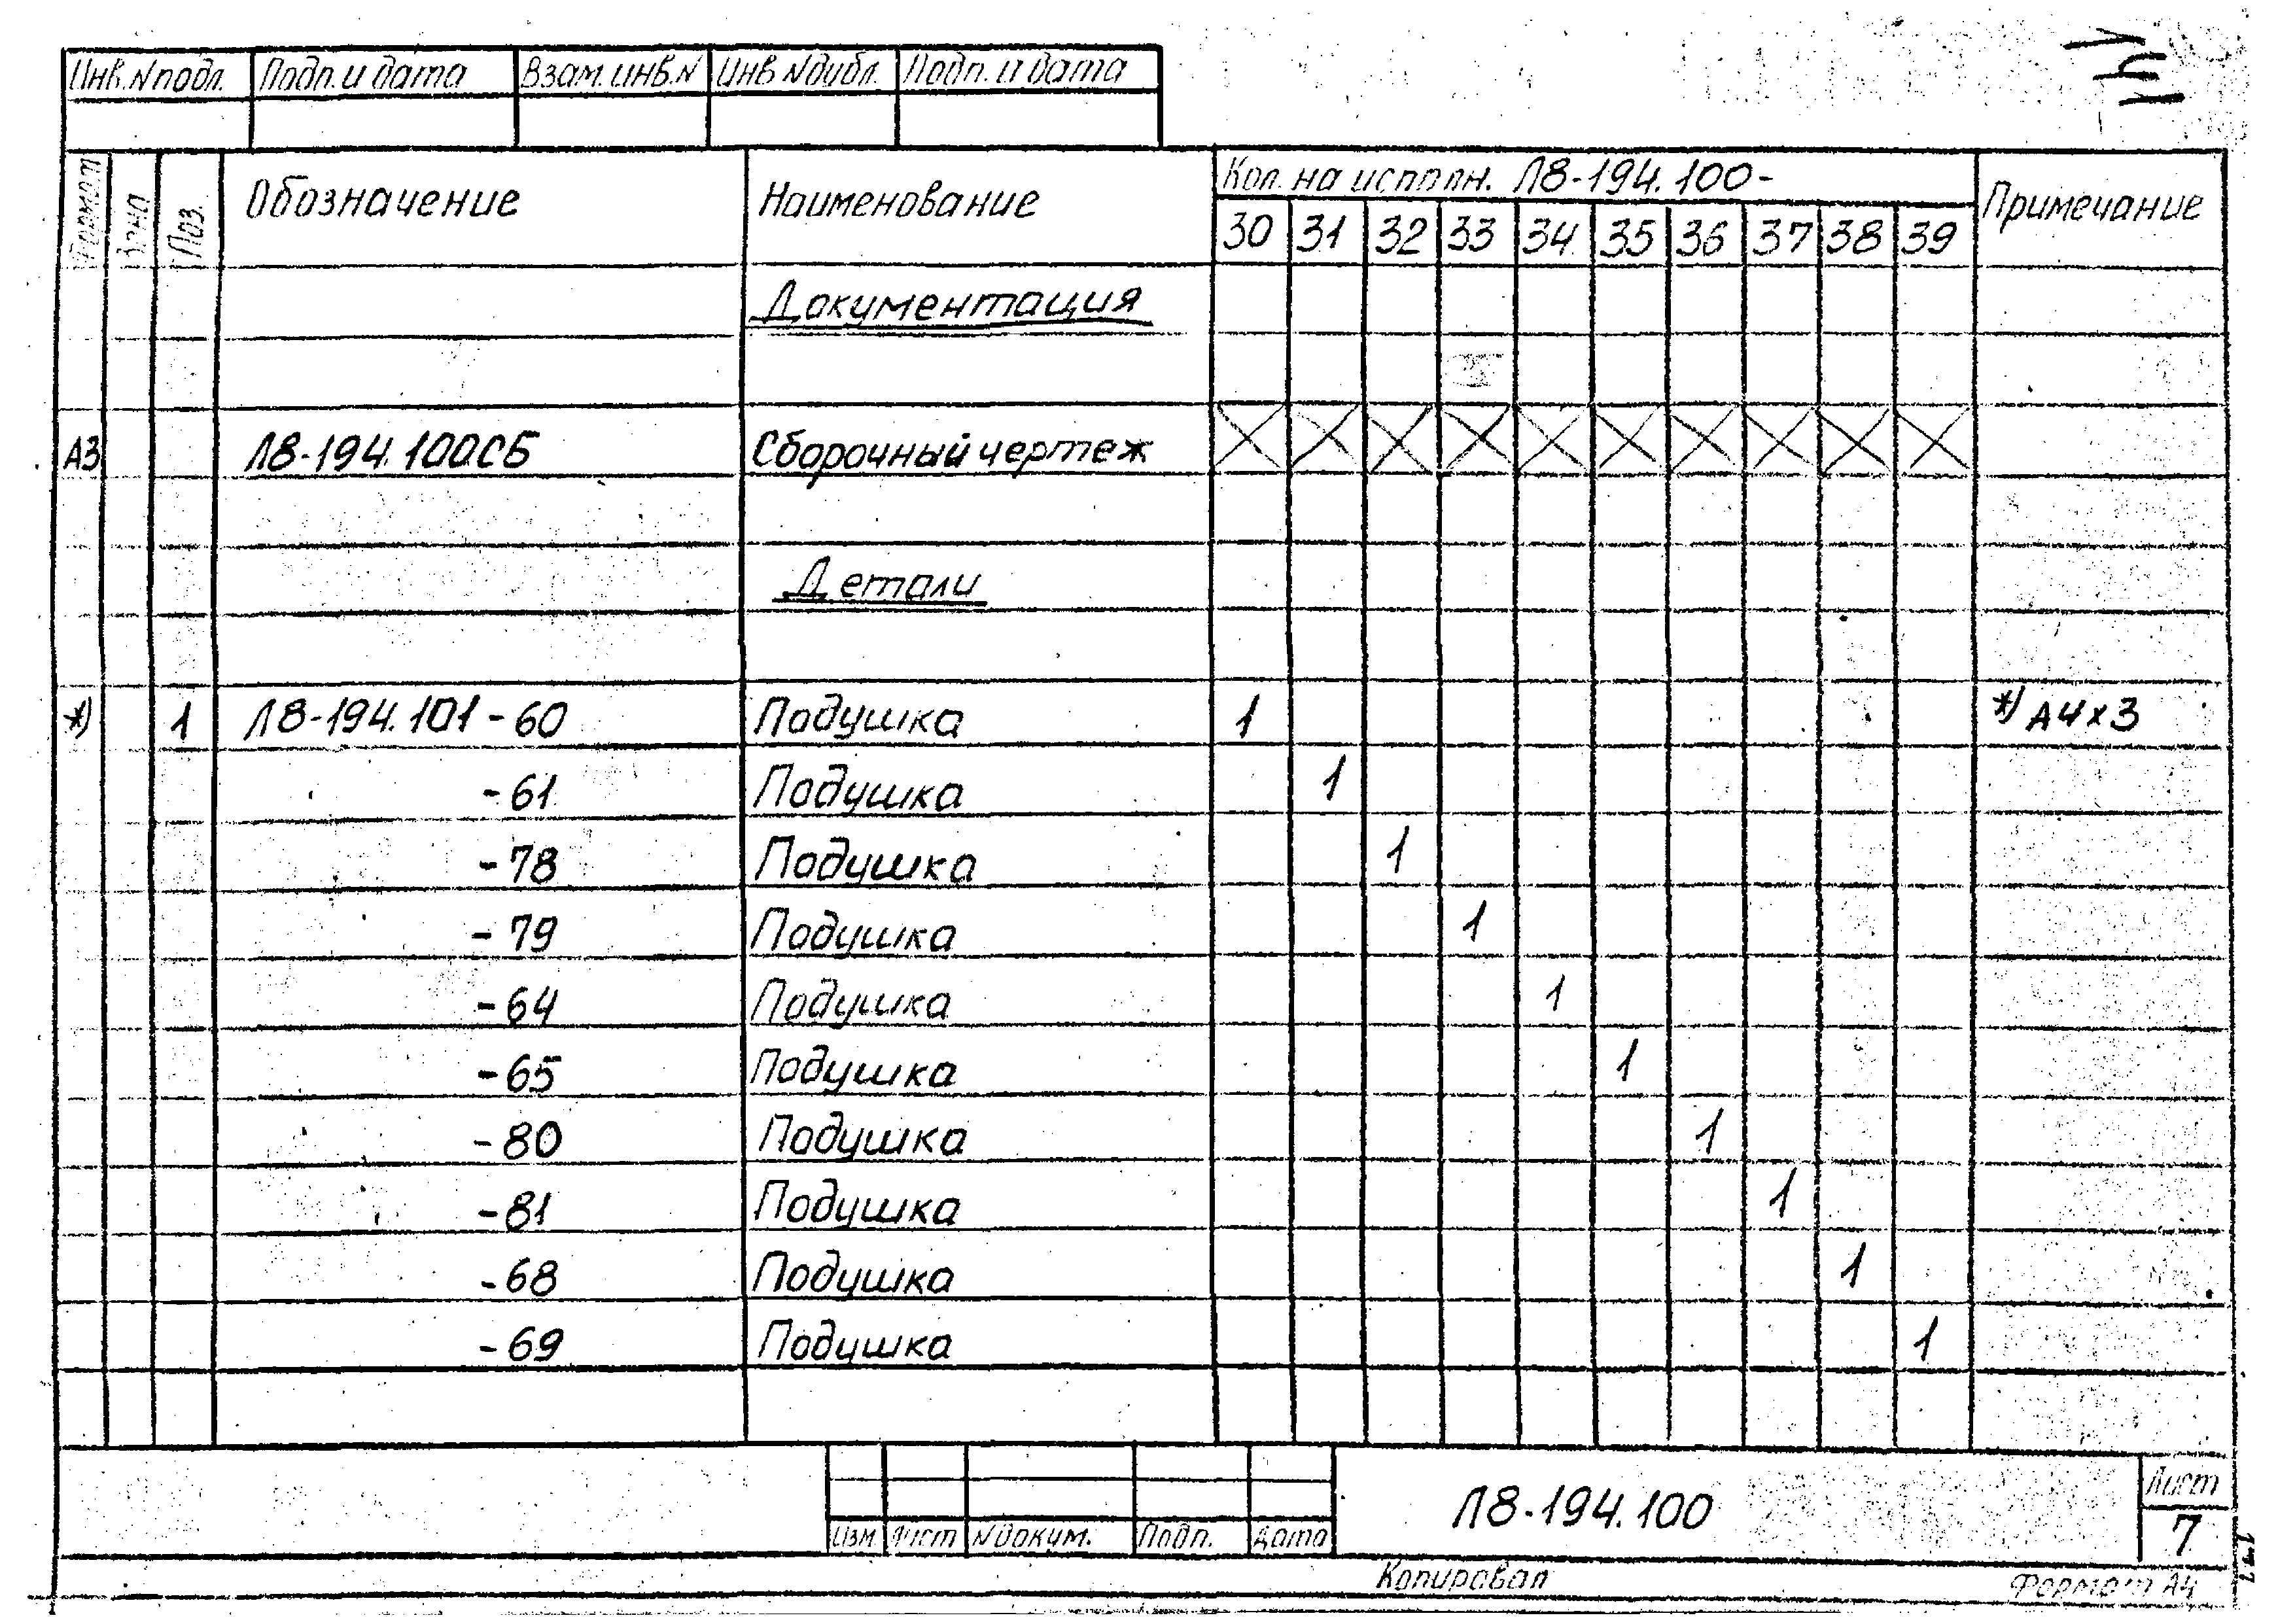 Инв. N подл. Подп. и дата Взам. инв. N Инв N дубл. Подп. и дата
Формат Зона Поз. Обозначение Наименование Кол. на исполн. Л8-194.100- Примечание
30 31 32 33 34 35 36 37 38 39
Документация
А3 Л8-194.100СБ Сборочный чертеж
Детали
*) 1 Л8-194.101-60 Подушка 1 *) А4х3
-61 Подушка 1
-78 Подушка 1
-79 Подушка 1
-64 Подушка 1
-65 Подушка 1
-80 Подушка 1
-81 Подушка 1
-68 Подушка 1
-69 Подушка 1
Л8-194.100 Лист
Изм Лист N докум. Подп. Дата 7
Копировал Формат А4